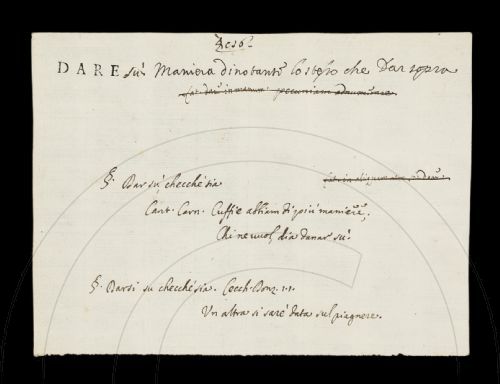 DARE sù. Maniera dinotante lo stesso che Dar sopra
§. Dar sù, checché sia
Cant. Carn. Cuffie abbiam di più maniere,
Chi ne vuol, dia danar sù.
§. Darsi su checché sia. Cecch. Donz. 1. 1.
Un altra si sare' data sul piagnere.